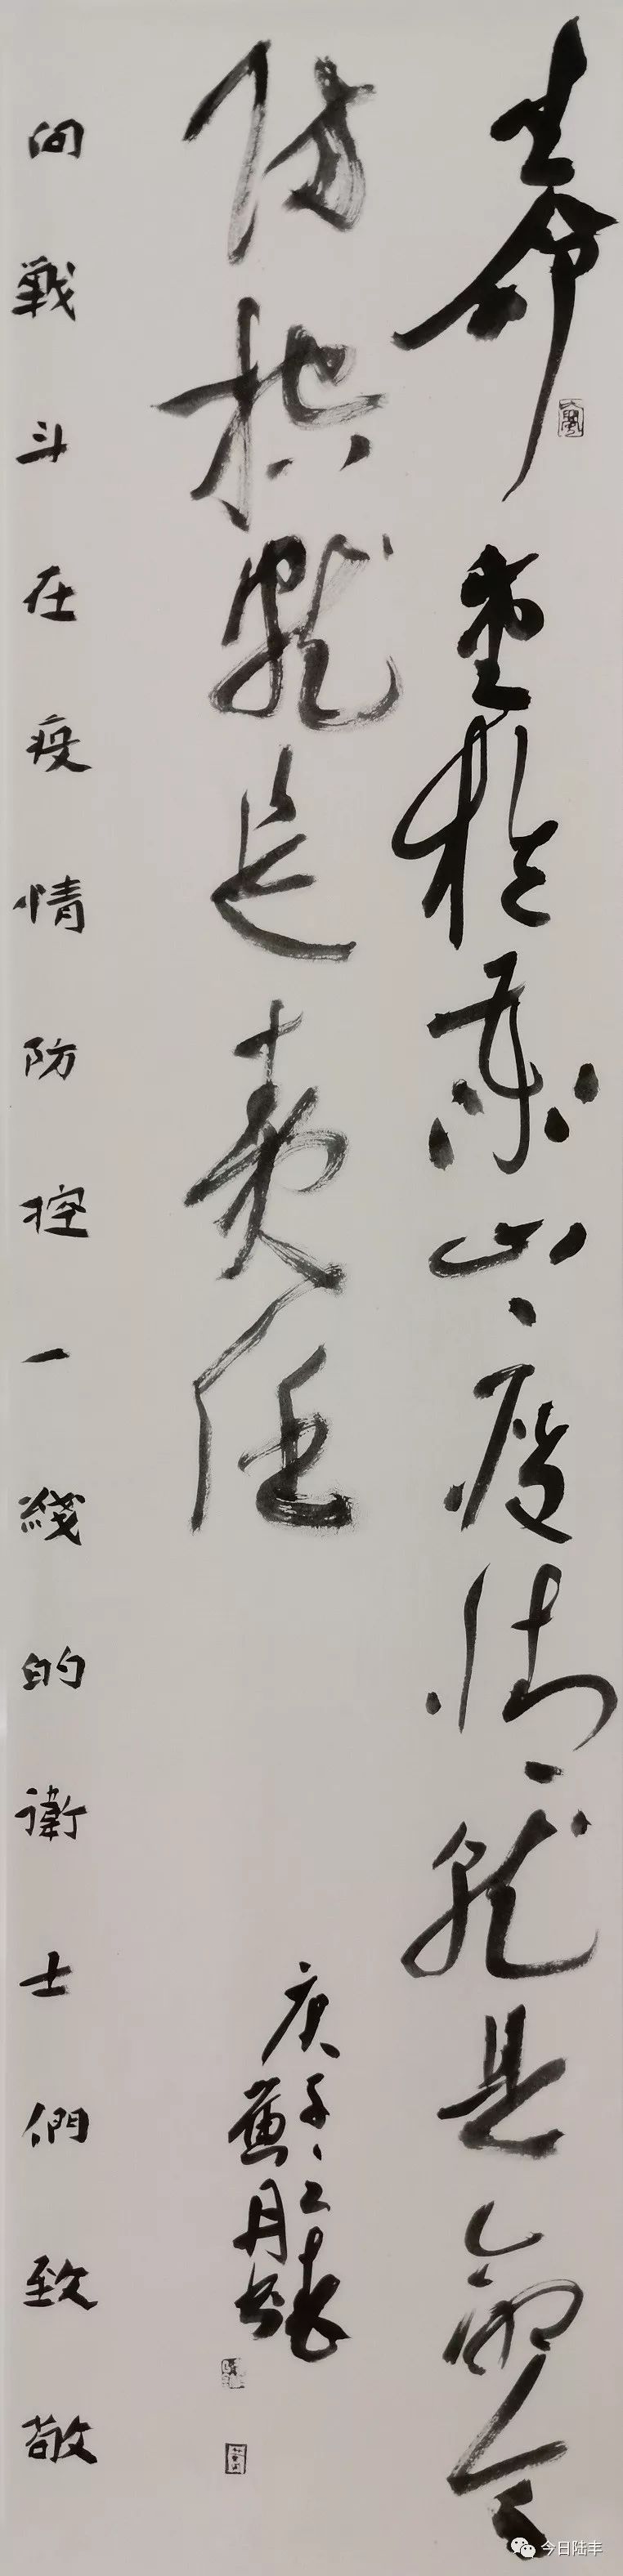 生命重於泰山疫情就是命令
防控就是責任
庚子之春
蘇月书
向戰斗在疫情防控一綫的衛士們致敬
今日陆丰